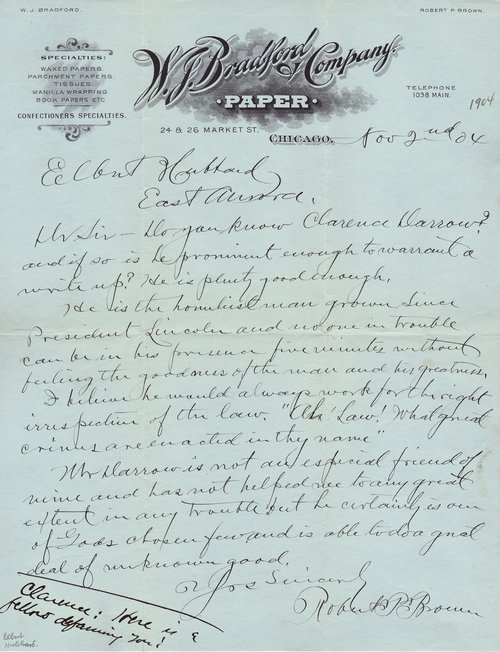 W. J. BRADFORD.
ROBERT P. BROWN.
SPECIALTIES:
WAXED PAPERS
PARCHMENT PAPERS,
TISSUES
MANILLA WRAPPING
BOOK PAPERS ETC
CONFECTIONERS SPECIALTIES.
W. J. Bradford & Company.
PAPER
TELEPHONE
1038 MAIN.
1904
24 & 26 MARKET ST.
CHICAGO, Nov 2nd 04
Elbert Hubbard
East Aurora.
Dr Sir - Do you know Clarence Darrow?
and if so is he prominent enough to warrant a
write up? He is plenty good enough.
He is the homliest man grown since
President Lincoln and no one in trouble
can be in his presence five minutes without
feeling the goodness of the man and his greatness.
I believe he would always work for the right
irrespective of the law. "Oh! Law! What great
crimes are enacted in thy name"
Mr Darrow is not an especial friend of
mine and has not helped me to any great
extent in any trouble but he certainly is one
of Gods chosen few and is able to do a great
deal of unknown good.
Yrs Sincerely
Robert P. Brown
Clarence: Here is a
fellow defaming you!
Elbert
Hubbard.